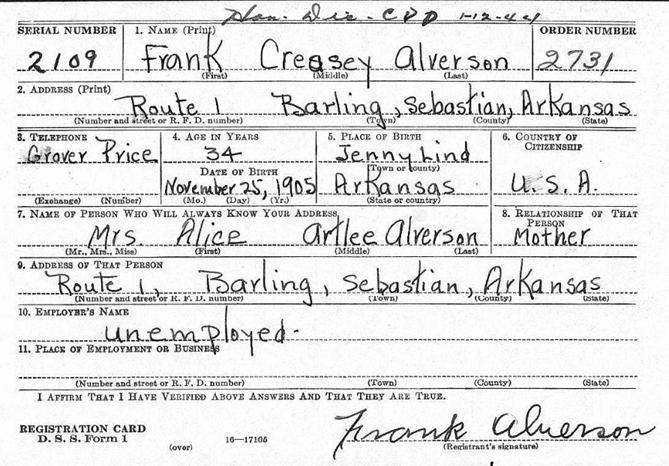 Hon. Dis. - CDD 1-12-44
SERIAL NUMBER 1. NAME (Print) ORDER NUMBER
2109 Frank Creasey Alverson 2731
(First) (Middle) (Last)
2. ADDRESS (Print)
Route 1 Barling, Sebastian, Arkansas
(Number and street or R. F. D. number) (Town) (County) (State)
3. TELEPHONE 4. AGE IN YEARS 5. PLACE OF BIRTH 6. COUNTRY OF CITIZENSHIP
Grover Price 34 Jenny Lind
(Town or county)
DATE OF BIRTH
November 25, 1905 Arkansas U.S.A.
(Exchange) (Number) (Mo.) (Day) (Yr.) (State or country)
7. NAME OF PERSON WHO WILL ALWAYS KNOW YOUR ADDRESS 8. RELATIONSHIP OF THAT PERSON
Mrs. Alice Artlee Alverson Mother
(Mr., Mrs., Miss) (First) (Middle) (Last)
9. ADDRESS OF THAT PERSON
Route 1, Barling, Sebastian, Arkansas
(Number and street or R. F. D. number) (Town) (County) (State)
10. EMPLOYER'S NAME
unemployed-
11. PLACE OF EMPLOYMENT OR BUSINESS
(Number and street or R. F. D. number) (Town) (County) (State)
I AFFIRM THAT I HAVE VERIFIED ABOVE ANSWERS AND THAT THEY ARE TRUE.
REGISTRATION CARD
D. S. S. Form 1 (over) 16—17105 Frank Alverson
(Registrant's signature)